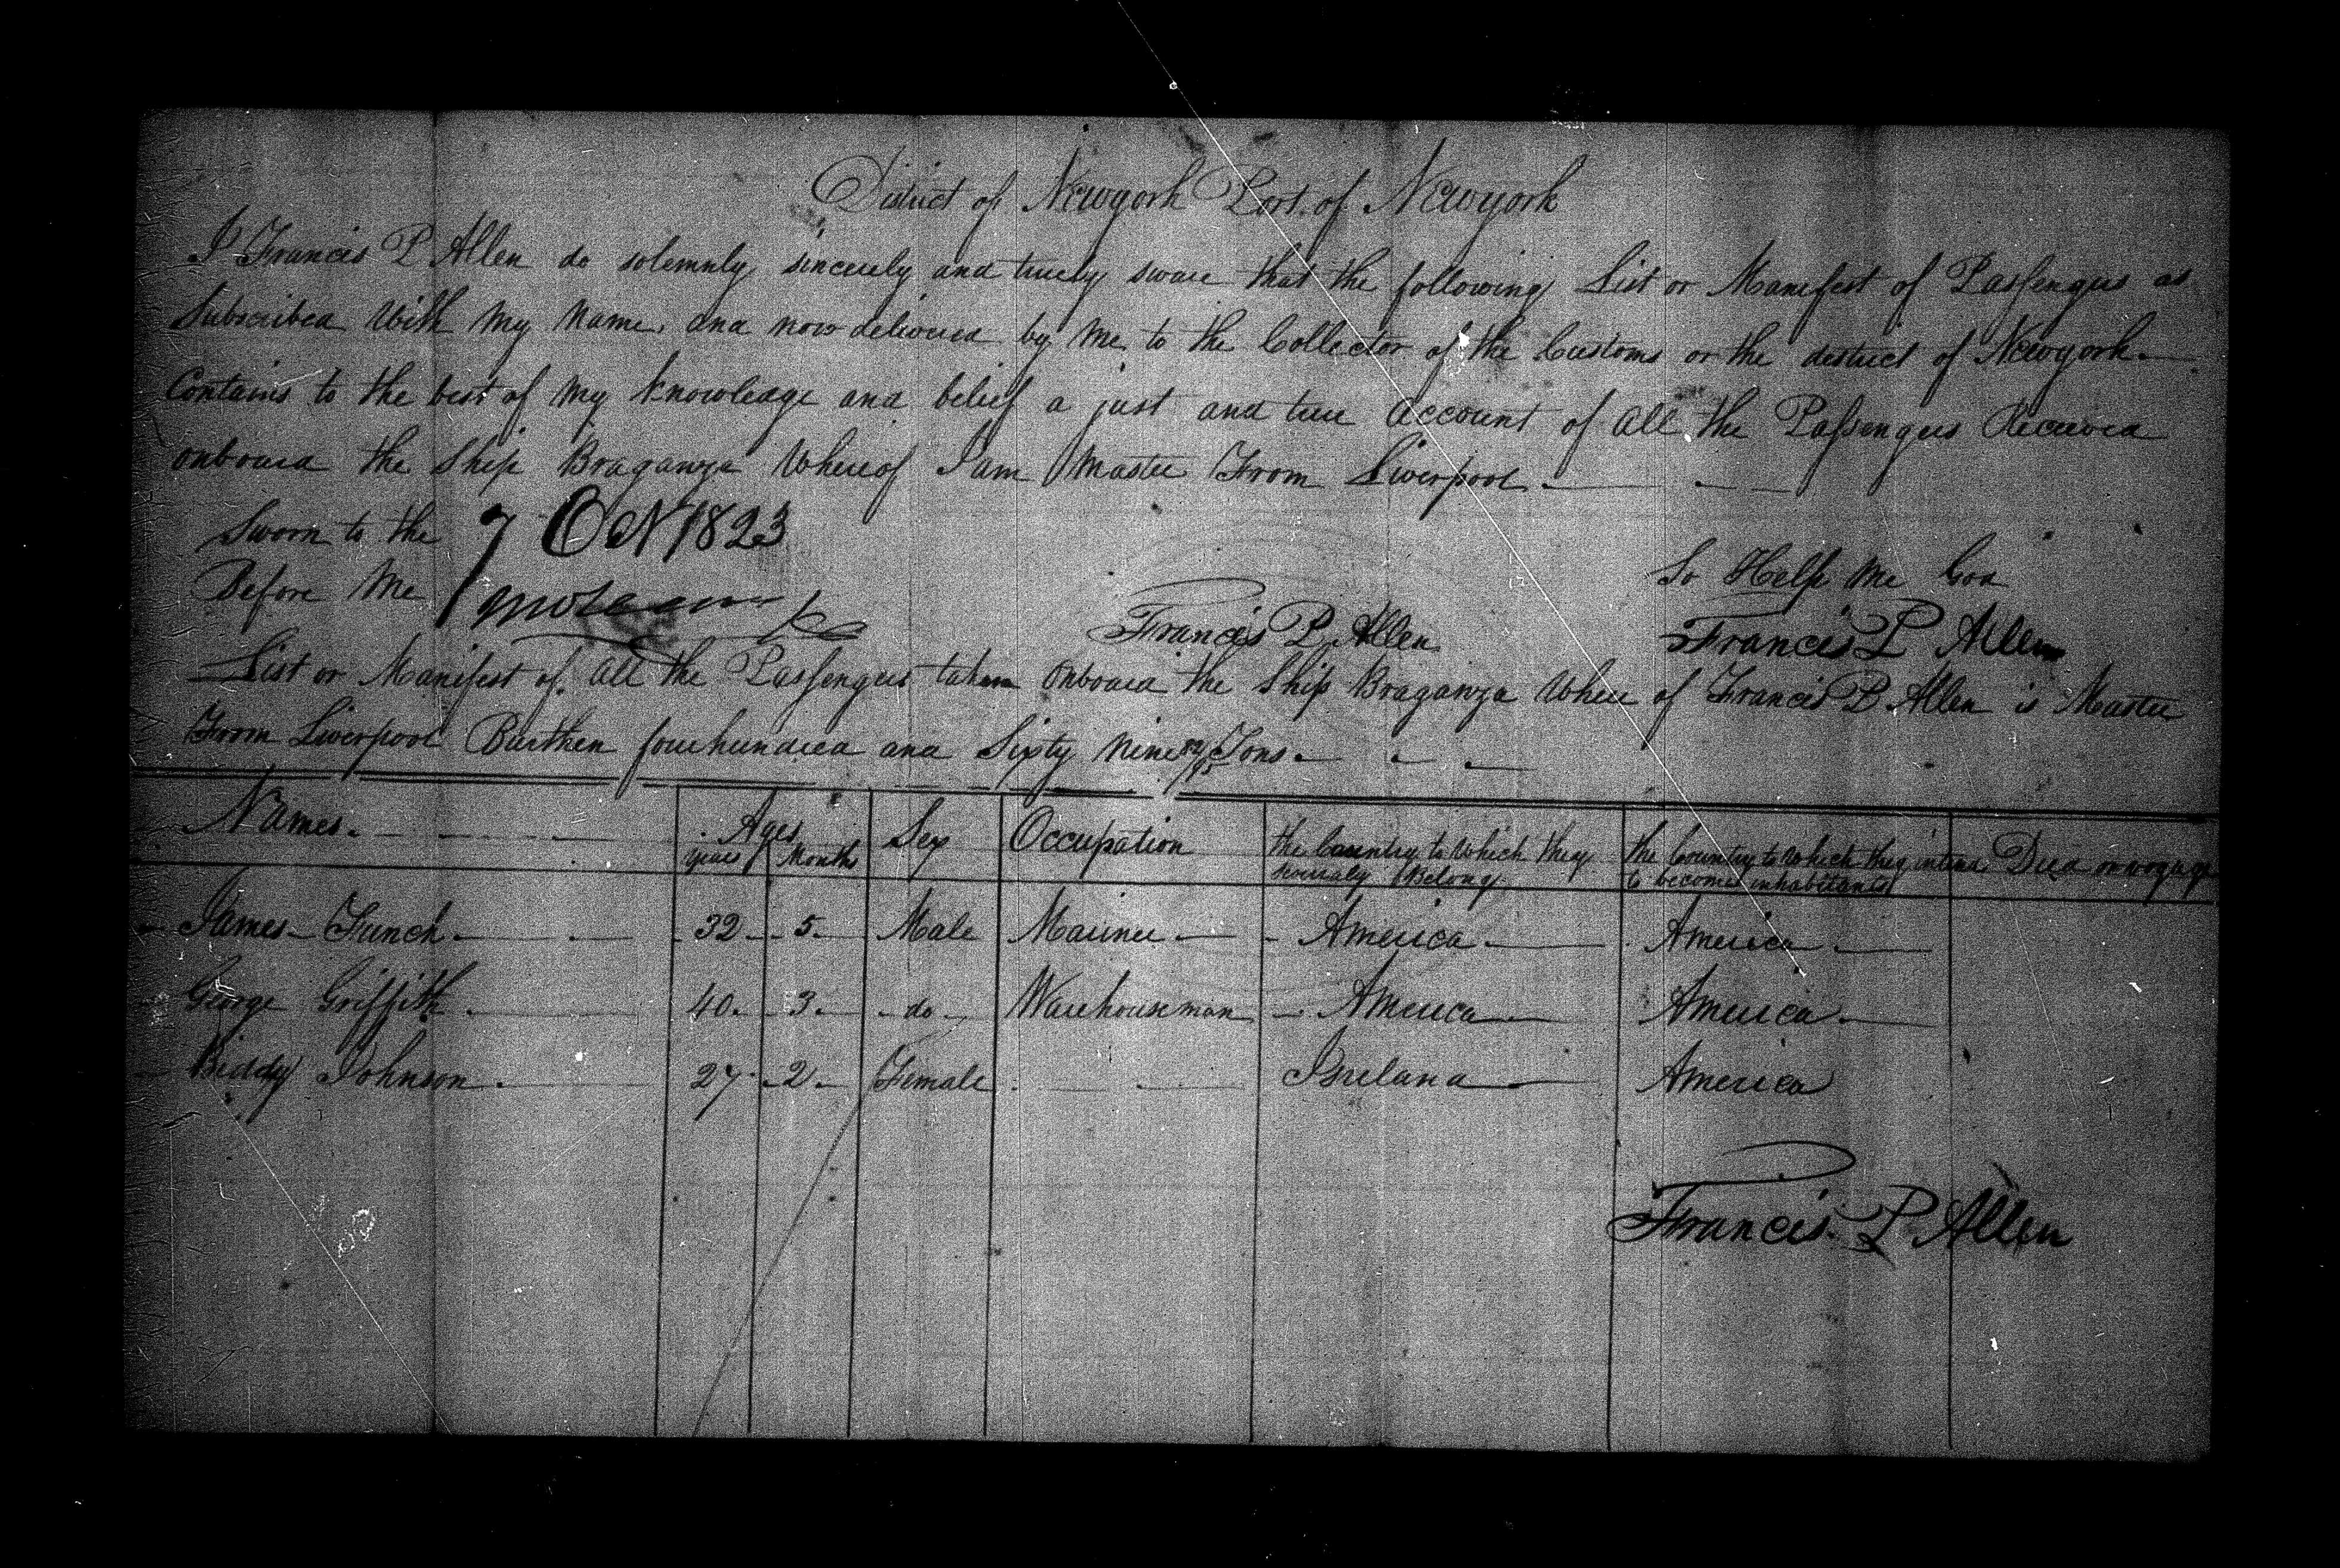 District of Newyork Port of Newyork
I Francis P Allen do solemnly sincerely and truely sware that the following List or Manifest of Passengers as
Subscribed With My Name, and now delivered by Me to the Collector of the Customs or the district of Newyork
Contains to the best of My Knowledge and belief a just and true account of all the Passengers Received
onboard the Ship Braganza Whereof I am Master From Liverpool
Sworn to the 7 Oct 1823
Before Me
So Help Me God
Francis P Allen Francis P Allen
List or Manifest of all the Passengers taken onboard the Ship Braganza Where of Francis P Allen is Master
From Liverpool Burthen fourhundred and Sixty Nine 82/95 Tons
Names Ages Sex Occupation the Country to Which they the Country to Which they intend Died on voyage
years Months severaly Belong to become inhabitants
James Funch 32 5 Male Mariner America America
George Griffith 40 3 do Warehouseman America America
Biddy Johnson 27 2 Female Ireland America
Francis P Allen